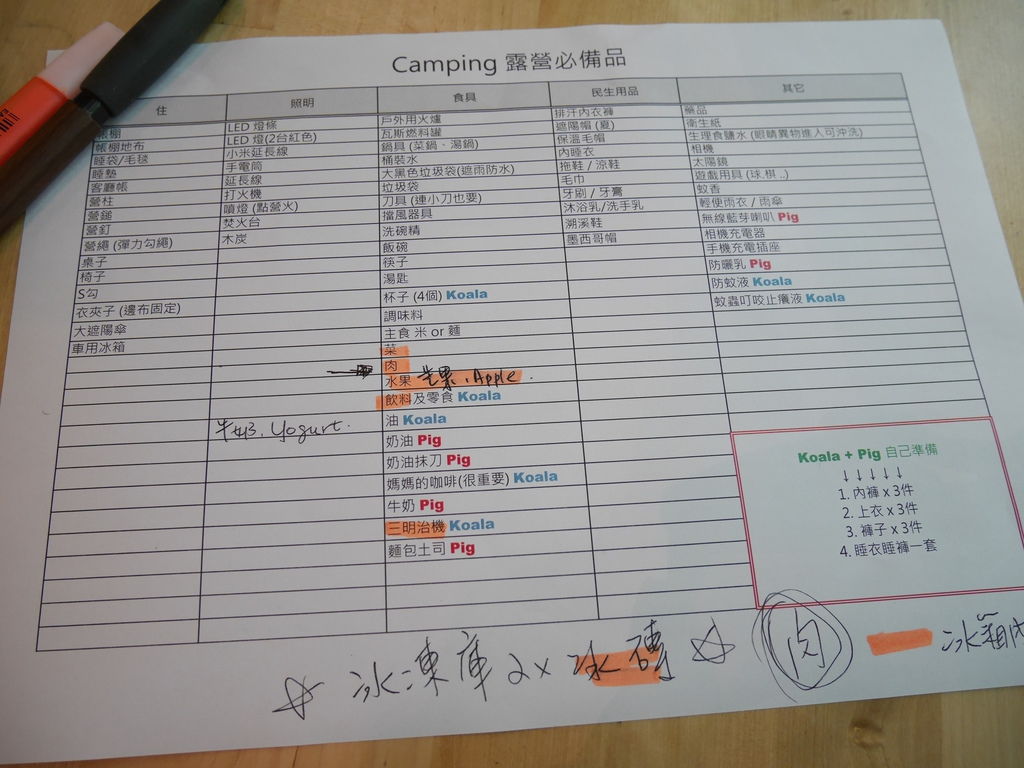 Camping 露營必備品
住
照明
食具
民生用品
其它
帳棚
帳棚地布
睡袋/毛毯
睡墊
客廳帳
營柱
營鎚
營釘
營繩 (彈力勾繩)
桌子
椅子
S勾
衣夾子 (邊布固定)
大遮陽傘
車用冰箱
LED 燈條
LED 燈(2台紅色)
小米延長線
手電筒
延長線
打火機
噴燈 (點營火)
焚火台
木炭
牛奶. Yogurt.
戶外用火爐
瓦斯燃料罐
鍋具 (菜鍋、湯鍋)
桶裝水
大黑色垃圾袋(遮雨防水)
垃圾袋
刀具 (連小刀也要)
擋風器具
洗碗精
飯碗
筷子
湯匙
杯子 (4個) Koala
調味料
主食 米 or 麵
菜
肉
水果 芒果. Apple.
飲料及零食 Koala
油 Koala
奶油 Pig
奶油抹刀 Pig
媽媽的咖啡(很重要) Koala
牛奶 Pig
三明治機 Koala
麵包土司 Pig
排汗內衣褲
遮陽帽 (夏)
保溫毛帽
內睡衣
拖鞋 / 涼鞋
毛巾
牙刷 / 牙膏
沐浴乳/洗手乳
溯溪鞋
墨西哥帽
藥品
衛生紙
生理食鹽水 (眼睛異物進入可沖洗)
相機
太陽鏡
遊戲用具 (球.棋 ..)
蚊香
輕便雨衣 / 雨傘
無線藍芽喇叭 Pig
相機充電器
手機充電插座
防曬乳 Pig
防蚊液 Koala
蚊蟲叮咬止癢液 Koala
Koala + Pig 自己準備
↓↓↓↓↓
1. 內褲 x 3件
2. 上衣 x 3件
3. 褲子 x 3件
4. 睡衣睡褲一套
☆ 冰凍庫 2x 冰磚 ☆ 肉
冰箱內